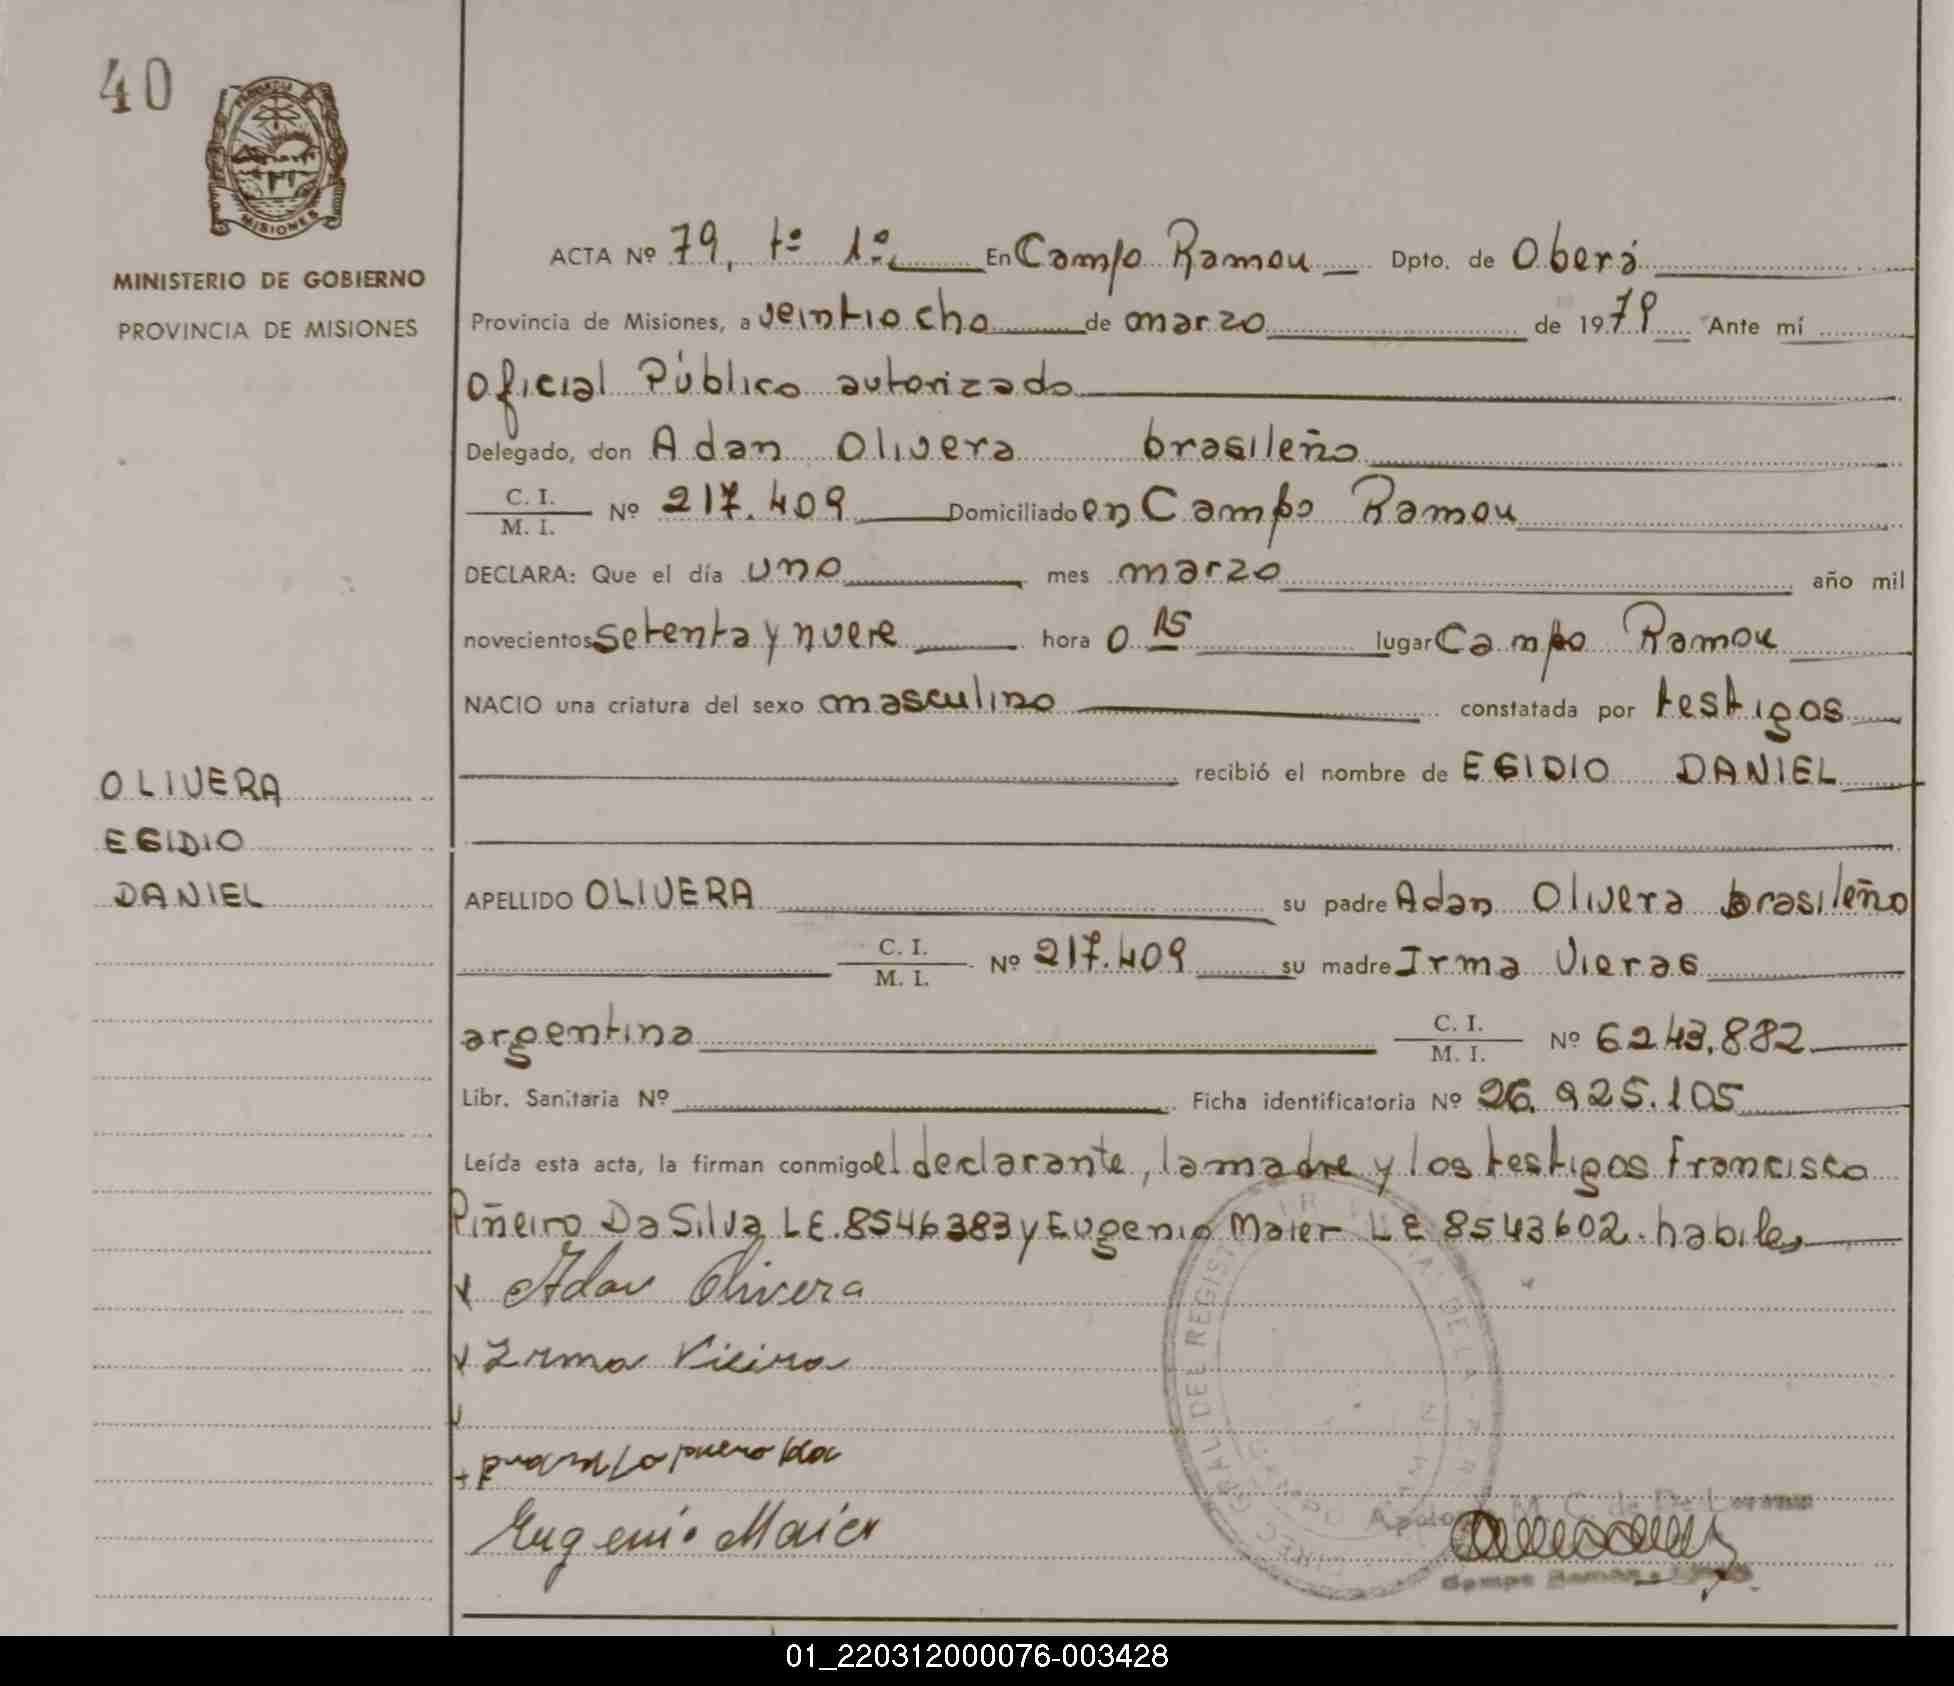 40
PROVINCIA DE
MISIONES
MINISTERIO DE GOBIERNO
PROVINCIA DE MISIONES
ACTA Nº 79, tº 1º, En Campo Ramou Dpto. de Oberá
Provincia de Misiones, a veintiocho de marzo de 1979 Ante mí
Oficial Público autorizado
Delegado, don Adan Olivera brasileño
C. I.
M. I. Nº 217.409 Domiciliado en Campo Ramou
DECLARA: Que el día uno mes marzo año mil
novecientos setenta y nueve hora 0 15 lugar Campo Ramou
NACIO una criatura del sexo masculino constatada por testigos
recibió el nombre de EGIDIO DANIEL
OLIVERA
EGIDIO
DANIEL
APELLIDO OLIVERA su padre Adan Olivera brasileño
C. I.
M. I. Nº 217.409 su madre Irma Vieras
argentina C. I.
M. I. Nº 6.243.882
Libr. Sanitaria Nº Ficha identificatoria Nº 26.925.105
Leída esta acta, la firman conmigo el declarante, la madre y los testigos Francisco
Piñeiro Da Silva LE. 8546383 y Eugenio Maier LE 8543602. habiles
Adan Olivera
Irma Vieira
Eugenio Maier
DIREC. GRAL. DEL REGIST DE LA
Apolo M. C. de
Campo Ramon
01_220312000076-003428